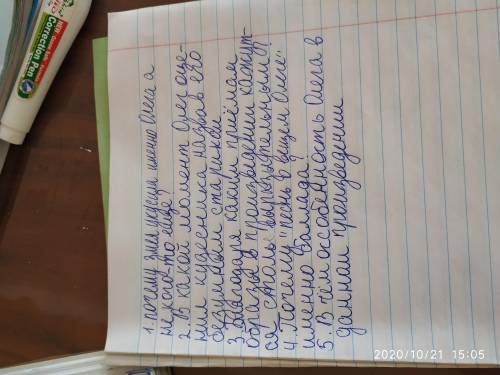 1. почему змея укусила именно Олега а
не кого-то еще?
2. В какой момент Олег оце-
нил кудесника назвав его
безумным стариком
3. Благодаря каким приёмам
образы в произведении кажут-
ся столь выразительными?
4. Почему "песнь о вещем Олеге"
именно баллада?
5. В чём особенность Олега в
данном произведении
2020/10/21 15:05
Correction Pen